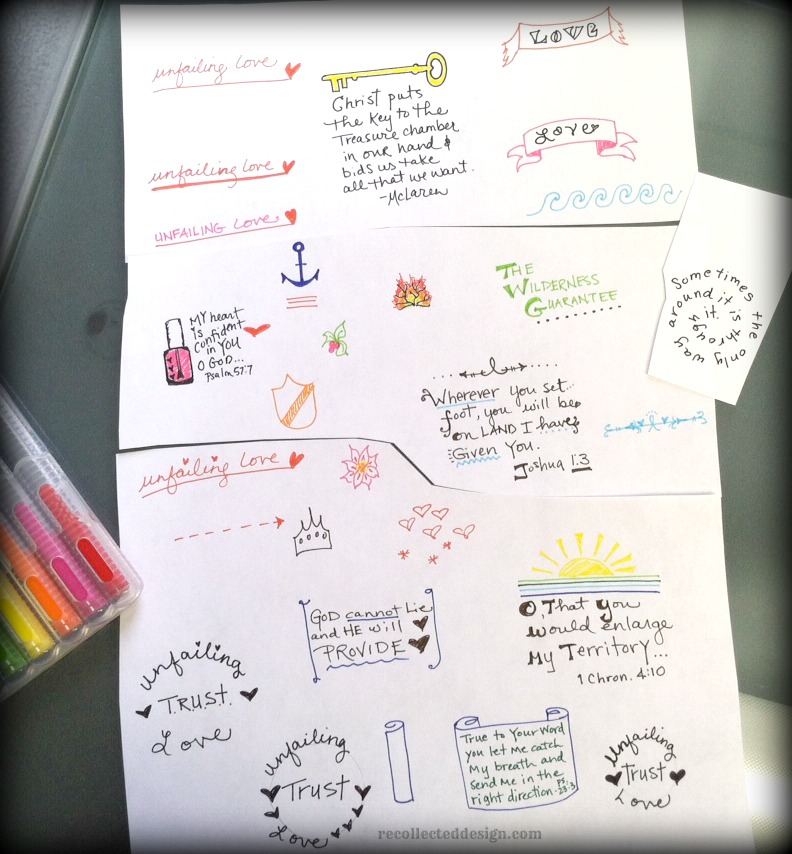 unfailing Love
Christ puts
the Key to the
Treasure chamber
in our hand &
bids us take
all that we want.
-McLaren
LOVE
unfailing Love
Love
UNFAILING Love
MY heart
is
confident
in YOU
O GOD...
Psalm 57:7
THE
WILDERNESS
GUARANTEE
Sometimes the only way
around it is
through it.
Wherever you set
foot, you will be
on LAND I have
Given You.
Joshua 1:3
unfailing Love
GOD cannot Lie
and HE will
PROVIDE
O, That You
would enlarge
My Territory...
1 Chron. 4:10
unfailing
T.R.U.S.T.
Love
unfailing
Trust
Love
True to Your Word
you let me catch
My breath and
send me in the
right direction. PS. 23:3
unfailing
Trust
Love
recollecteddesign.com